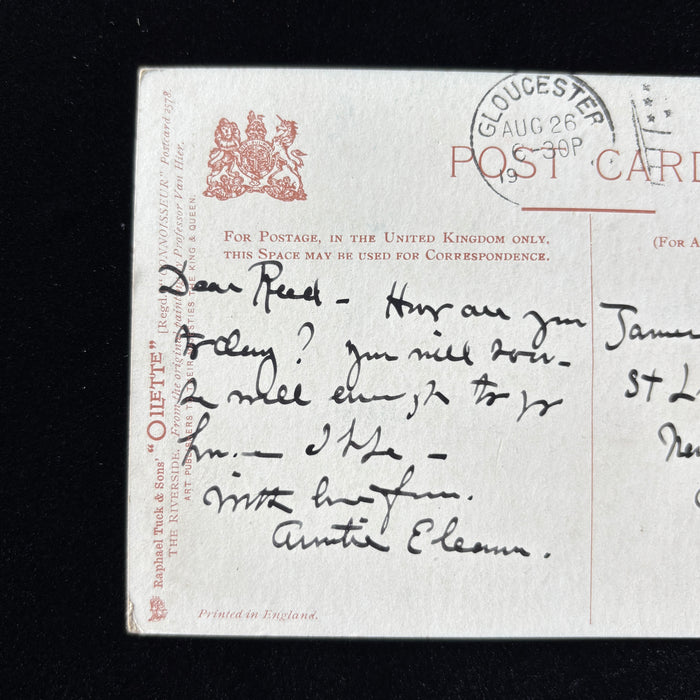 GLOUCESTER
AUG 26
6-30P
19
POST CARD
FOR POSTAGE, IN THE UNITED KINGDOM ONLY,
THIS SPACE MAY BE USED FOR CORRESPONDENCE.
(FOR A
Dear Reed - How are you
today? You will soon
be well enough to go
home I hope -
With love from
Auntie Eleanor.
James
St L
New
Raphael Tuck & Sons' "OILETTE" [Regd.] "CONNOISSEUR" Postcard 2578.
THE RIVERSIDE. From the original painting by Professor Van Hier.
ART PUBLISHERS TO THEIR MAJESTIES THE KING & QUEEN.
Printed in England.